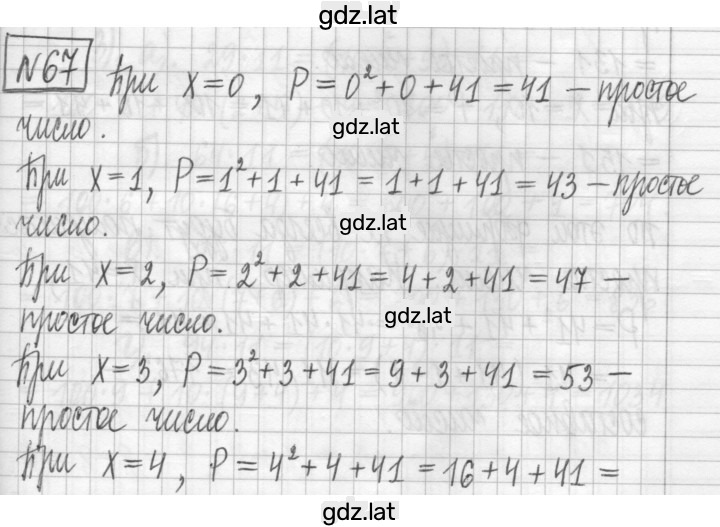 gdz.lat
N67 При x=0, P=0²+0+41=41 – простое
gdz.lat
число.
При x=1, P=1²+1+41=1+1+41=43 – простое
gdz.lat
число.
При x=2, P=2²+2+41=4+2+41=47 –
gdz.lat
простое число.
При x=3, P=3²+3+41=9+3+41=53 –
простое число.
gdz.lat
При x=4, P=4²+4+41=16+4+41=
gdz.lat